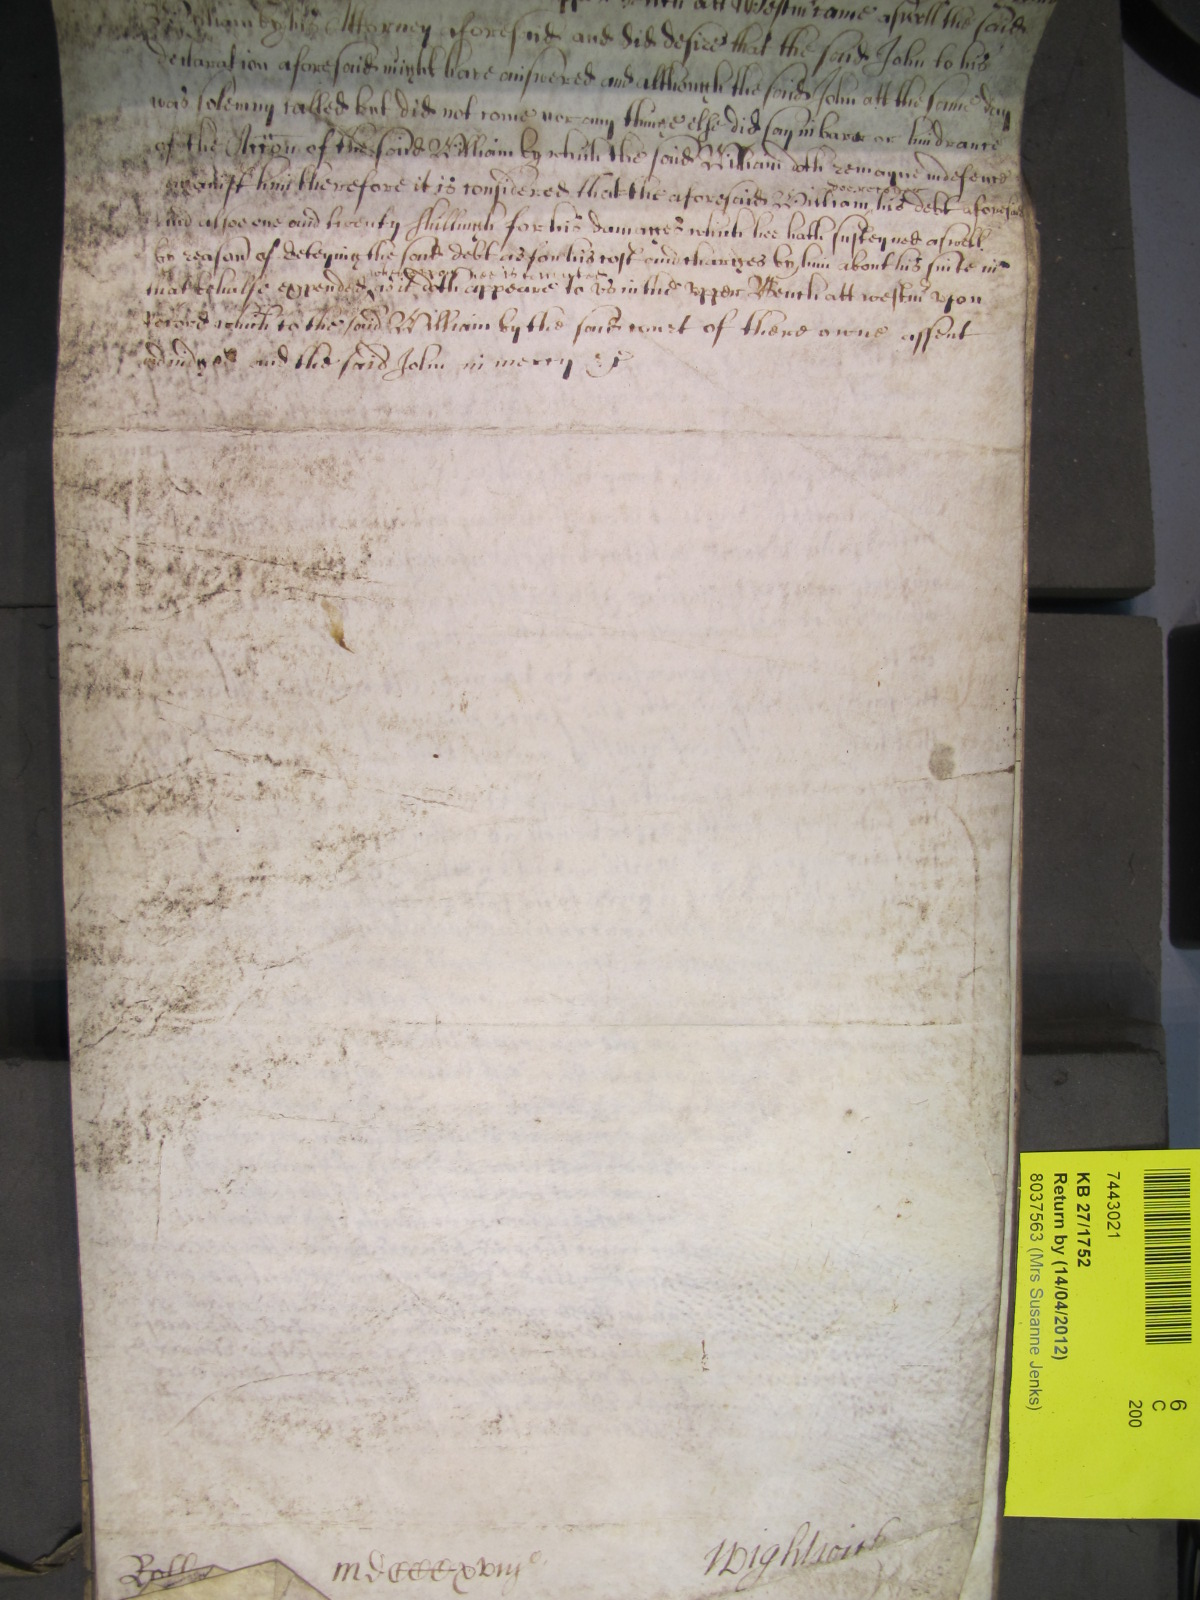 att Westm came aswell the said
William by his Attorney aforesaid and did desire that the said John to his
declaration aforesaid might have answered and although the said John att the same day
was solemny called but did not come nor any thinge else did say in barre or hindrance
of the Accōn of the said William by which the said William doth remayne indefence
against him therefore it is considered that the aforesaid William his debt aforesaid
And alsoe one and twenty shillings for his damages which hee hath susteyned aswell
by reason of deteyning the said debt as for his cost and charges by him about his suite in
that behalfe expended as it doth appeare to us in the upper Bench att westm̄ upon
record which to the said William by the said court of there owne assent
adiudged and the said John in mercy &c
Rolle
mdccccxviijo
Wightwick
7443021
KB 27/1752
Return by (14/04/2012)
8037563 (Mrs Susanne Jenks)
6
C
200